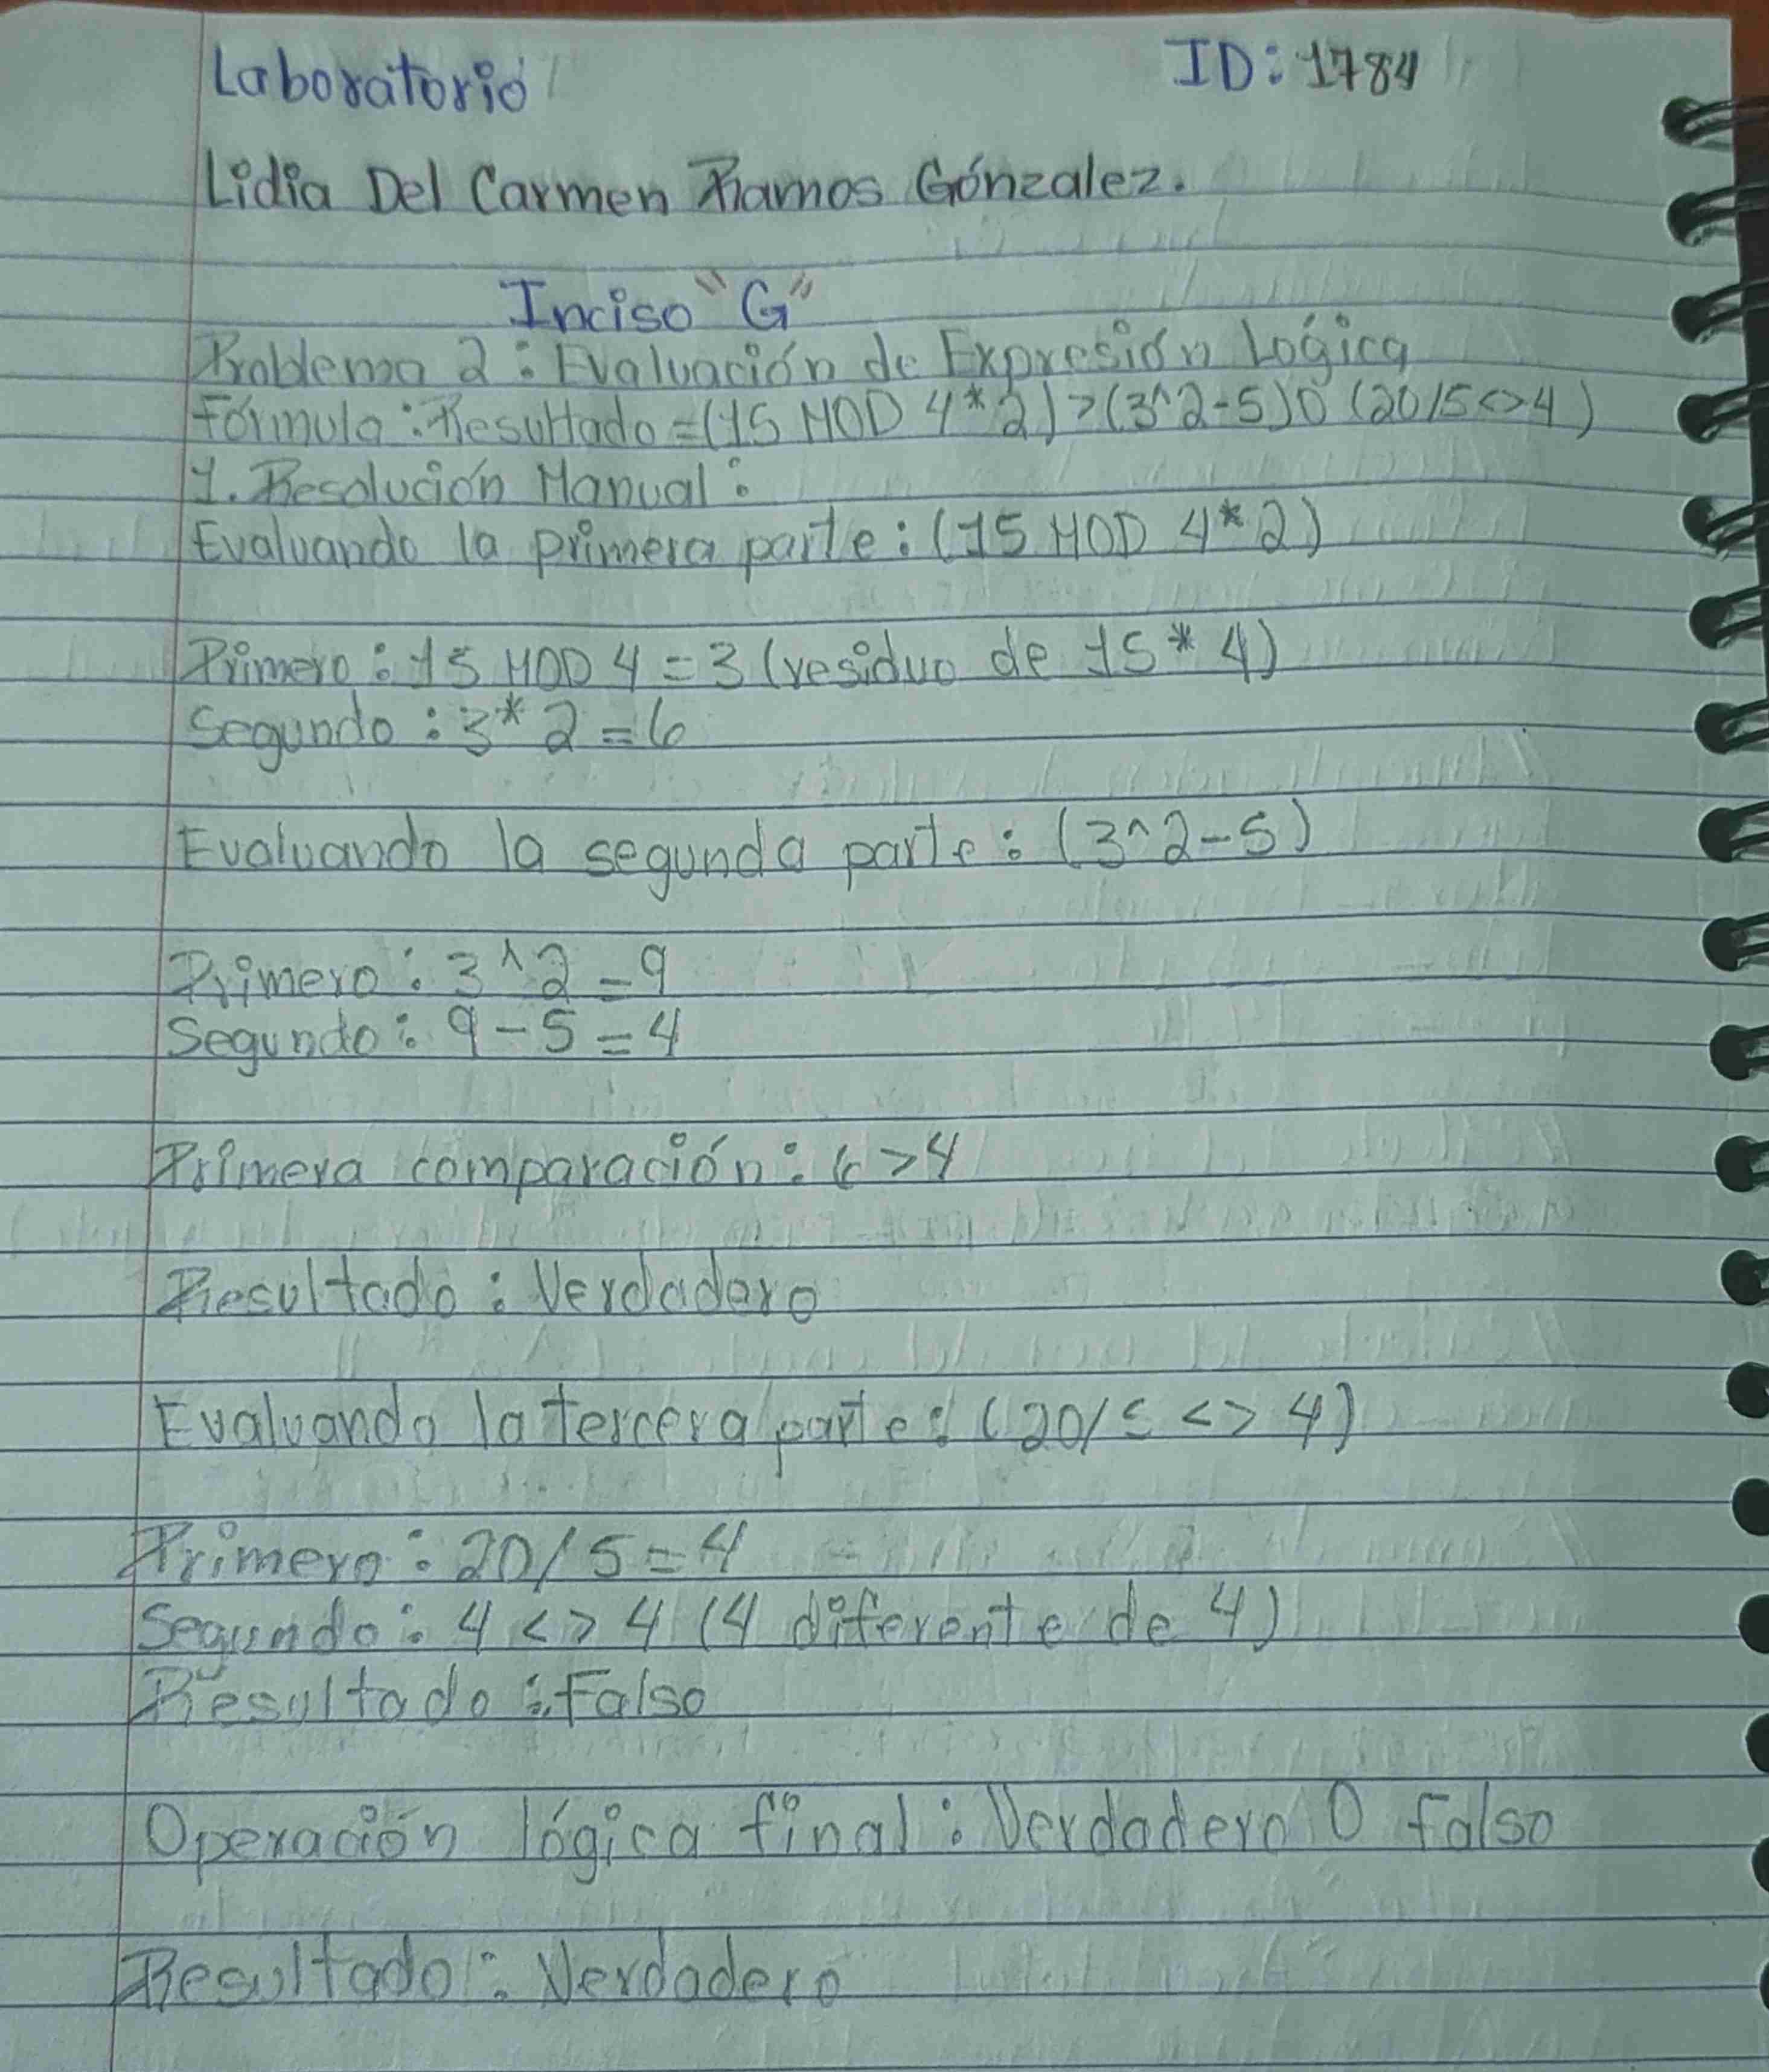 Laboratorio
ID: 1784
Lidia Del Carmen Ramos Gónzalez.
Inciso "G"
Problema 2: Evaluación de Expresión Lógica
Fórmula: Resultado = (15 MOD 4*2) > (3^2-5) O (20/5<>4)
1. Resolución Manual:
Evaluando la primera parte: (15 MOD 4*2)
Primero: 15 MOD 4 = 3 (residuo de 15 * 4)
Segundo: 3*2 = 6
Evaluando la segunda parte: (3^2-5)
Primero: 3^2 = 9
Segundo: 9 - 5 = 4
Primera comparación: 6 > 4
Resultado: Verdadero
Evaluando la tercera parte: (20/5 <> 4)
Primero: 20/5 = 4
Segundo: 4 <> 4 (4 diferente de 4)
Resultado: Falso
Operación lógica final: Verdadero O falso
Resultado: Verdadero